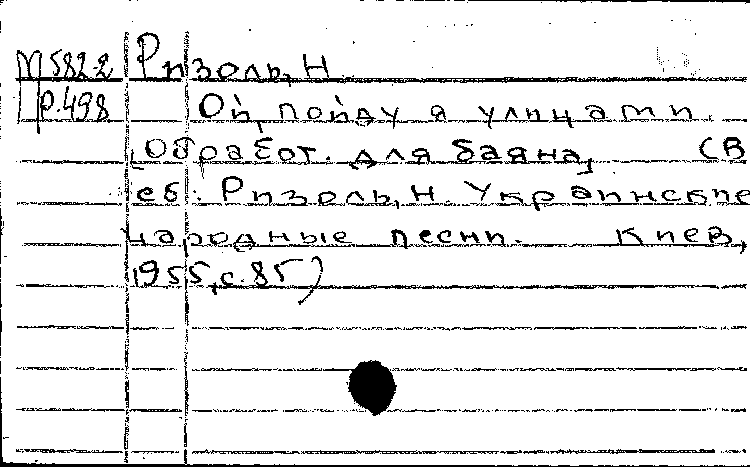 М 5822 Ризоль, Н.
р.498 Ой, пойду я улицами.
[Обработ. для баяна] (В
сб.: Ризоль, Н. Украинские
народные песни. Киев,
1955, с. 85)